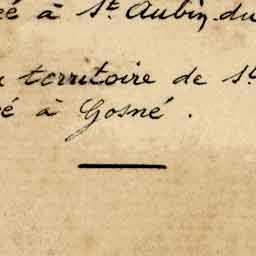 à St. Aubin du
territoire de St
à Gosné.